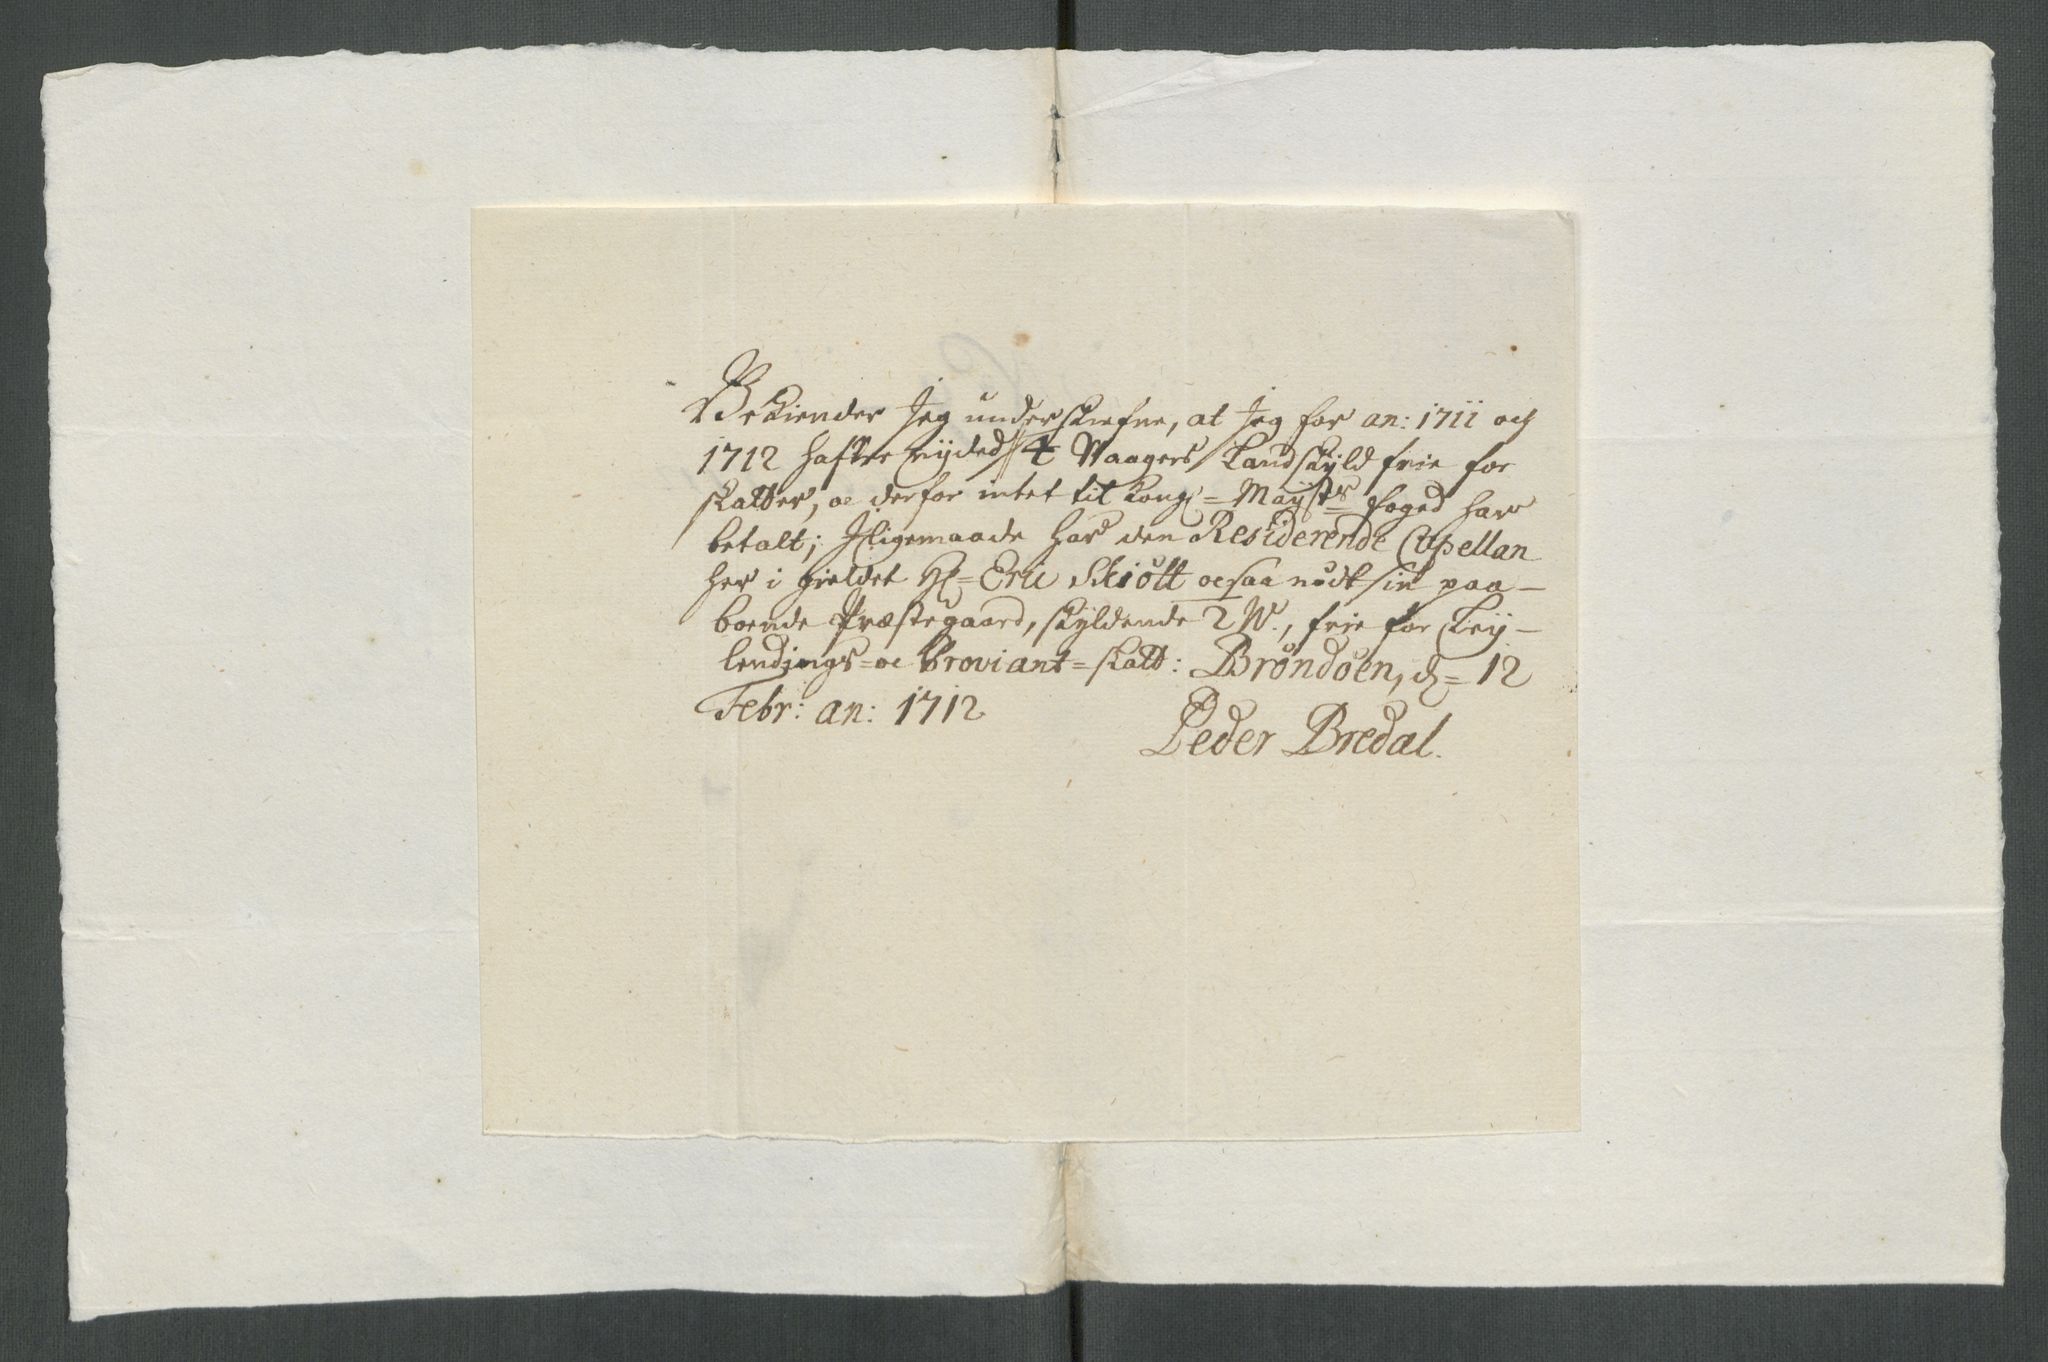 Bekiender Jeg underskrefne, at Jeg for an: 1711 och
1712 hafver nyded 4 Waagers Landskyld frie for
skatter, oc derfor intet til Kong= Mayst:s foged har
betalt; Jligemaade har den Residerende Capellan
her i gieldet Hr= Eric Schiött ocsaa nödt sin paa-
boende Præstegaard, skyldende 2 W., frie for Ley-
lendings= oc Proviant= skatt: Bröndöen, d= 12
Febr: an: 1712
Peder Bredal.